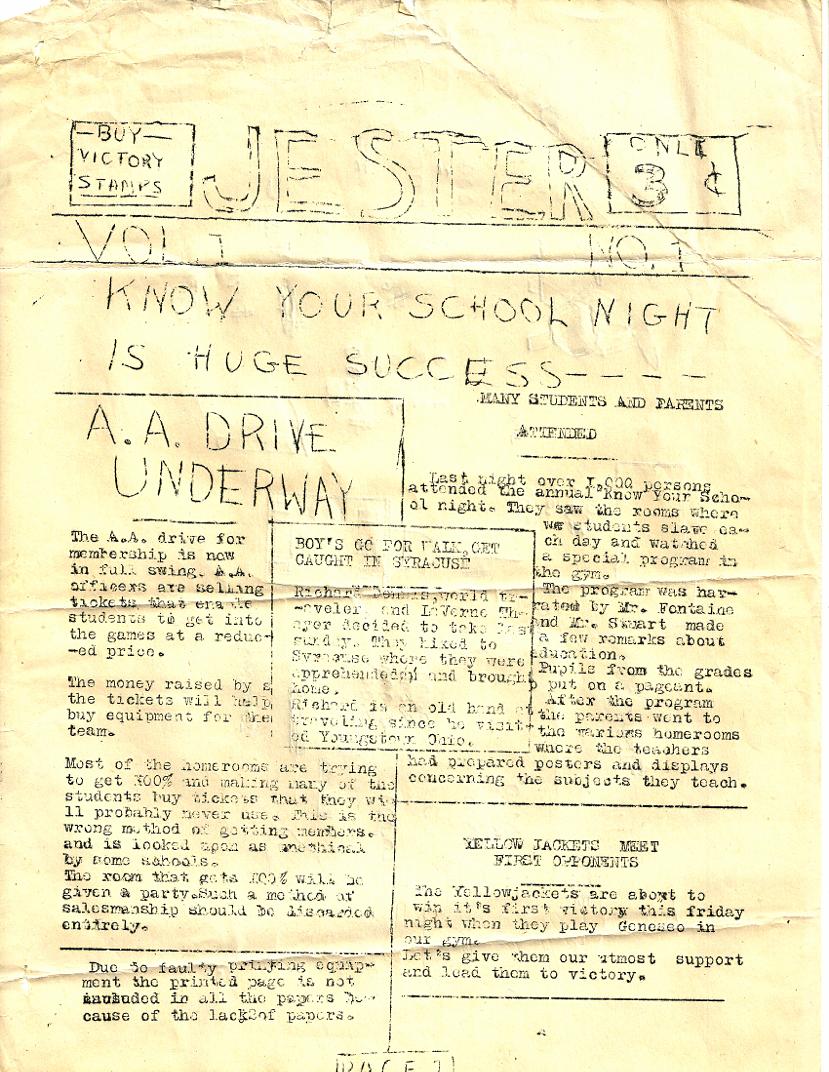 -BUY-
VICTORY
STAMPS
JESTER
ONLY
3 ¢
VOL 1 NO. 1
KNOW YOUR SCHOOL NIGHT
IS HUGE SUCCESS-----
A.A. DRIVE
UNDERWAY
The A.A. drive for
membership is now
in full swing. A.A.
officers are selling
tickets that enable
students to get into
the games at a reduc-
-ed price.
The money raised by
the tickets will help
buy equipment for the
team.
Most of the homerooms are trying
to get 100% and making many of the
students buy tickets that they wi-
ll probably never use. This is the
wrong method of getting members.
and is looked upon as unethical
by some schools.
The room that gets 100% will be
given a party.Such a method of
salesmanship should be discarded
entirely.
Due to faulty printing equip-
ment the printed page is not
included in all the papers be-
cause of the lack of papers.
BOY'S GO FOR WALK,GET
CAUGHT IN SYRACUSE
Richard Dennis,world tr-
-aveler, and LaVerne Tha-
yer decided to take last
sunday. They hiked to
Syracuse where they were
apprehended and brough
home.
Richard is an old hand at
traveling since he visit-
ed Youngstown Ohio.
MANY STUDENTS AND PARENTS
ATTENDED
Last night over 1,000 persons
attended the annual Know Your Scho-
ol night. They saw the rooms where
we students slave ea-
ch day and watched
a special program in
the gym.
The program was nar-
rated by Mr. Fontaine
and Mr. Stuart made
a few remarks about
education.
Pupils from the grades
put on a pageant.
After the program
the parents went to
the various homerooms
where the teachers
had prepared posters and displays
concerning the subjects they teach.
YELLOW JACKETS MEET
FIRST OPPONENTS
The Yellowjackets are about to
win it's first victory this friday
night when they play Geneseo in
our gym.
Let's give them our utmost support
and lead them to victory.
PAGE 1